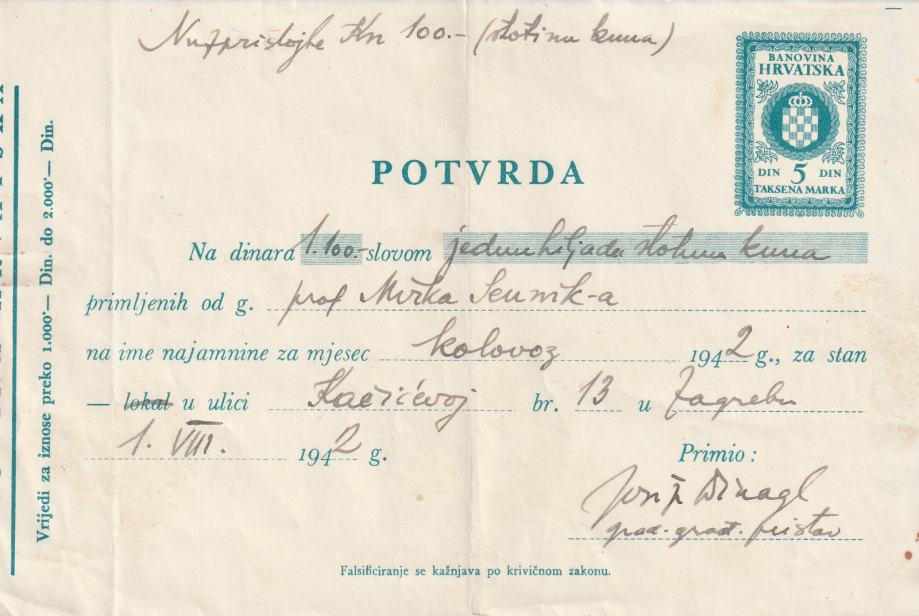 Nuzpristojbe Kn 100.- (stotinu kuna)
BANOVINA
HRVATSKA
DIN 5 DIN
TAKSENA MARKA
POTVRDA
Na dinara 1.100.- slovom jednu hiljadu stotinu kuna
primljenih od g. prof Mirka Seunik-a
na ime najamnine za mjesec kolovoz 1942 g., za stan
— lokal u ulici Kačićevoj br. 13 u Zagrebu
1. VIII. 1942 g.
Primio:
Josip
grad. građ. pristav
Falsificiranje se kažnjava po krivičnom zakonu.
Vrijedi za iznose preko 1.000·— Din. do 2.000·— Din.